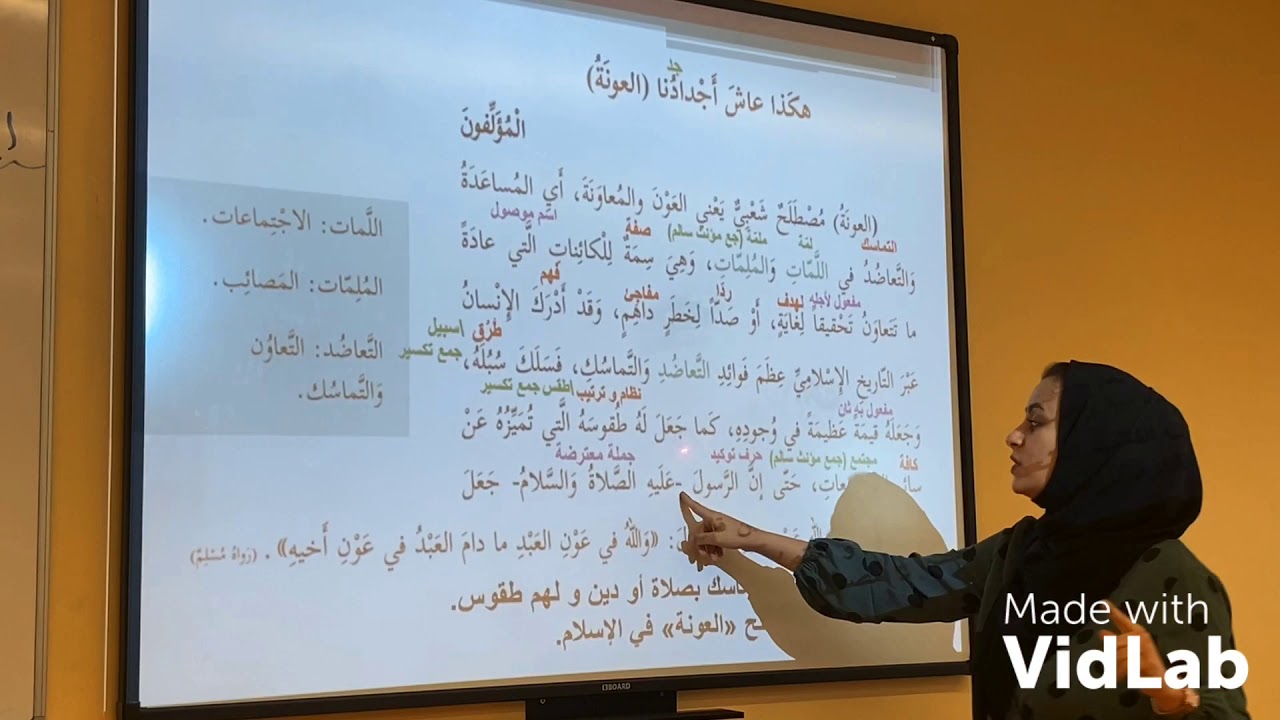 جد
هكَذا عاشَ أَجْدادُنا (العونَةُ)
الْمُؤَلِّفونَ
(العونَةُ) مُصْطَلَحٌ شَعْبِيٌّ يَعْني العَوْنَ والمُعاوَنَةَ، أَيِ المُساعَدَةُ
التماسك لمّة ملمة (جمع مؤنث سالم) صفة اسم موصول
وَالتَّعاضُدُ في اللَّمّاتِ وَالمُلِمّاتِ، وَهِيَ سِمَةٌ لِلْكائِناتِ الَّتي عادَةً
مفعول لأجله لهدف ردًا مفاجئ فهم
ما تَتَعاوَنُ تَحْقيقاً لِغايَةٍ، أَوْ صَدّاً لِخَطَرٍ داهِمٍ، وَقَدْ أَدْرَكَ الإِنْسانُ
طُرُق اسبيل
جمع تكسير
عَبْرَ التّاريخِ الإِسْلامِيِّ عِظَمَ فَوائِدِ التَّعاضُدِ وَالتَّماسُكِ، فَسَلَكَ سُبُلَهُ،
مفعول به ثان نظام و ترتيب اطقس جمع تكسير
وَجَعَلَهُ قيمَةً عَظيمَةً في وُجودِهِ، كَما جَعَلَ لَهُ طُقوسَهُ الَّتي تُمَيِّزُهُ عَنْ
كافة مجتمع (جمع مؤنث سالم) حرف توكيد جملة معترضة
حَتّى إنَّ الرَّسولَ -عَلَيهِ الصَّلاةُ وَالسَّلامُ- جَعَلَ
«وَاللهُ في عَوْنِ العَبْدِ ما دامَ العَبْدُ في عَوْنِ أَخيهِ». (رَواهُ مُسْلِمٌ)
بصلاة أو دين و لهم طقوس.
«العونة» في الإسلام.
اللَّمات: الاجْتِماعات.
المُلِمّات: المَصائِب.
التَّعاضُد: التَّعاوُن
وَالتَّماسُك.
EBOARD
Made with
VidLab